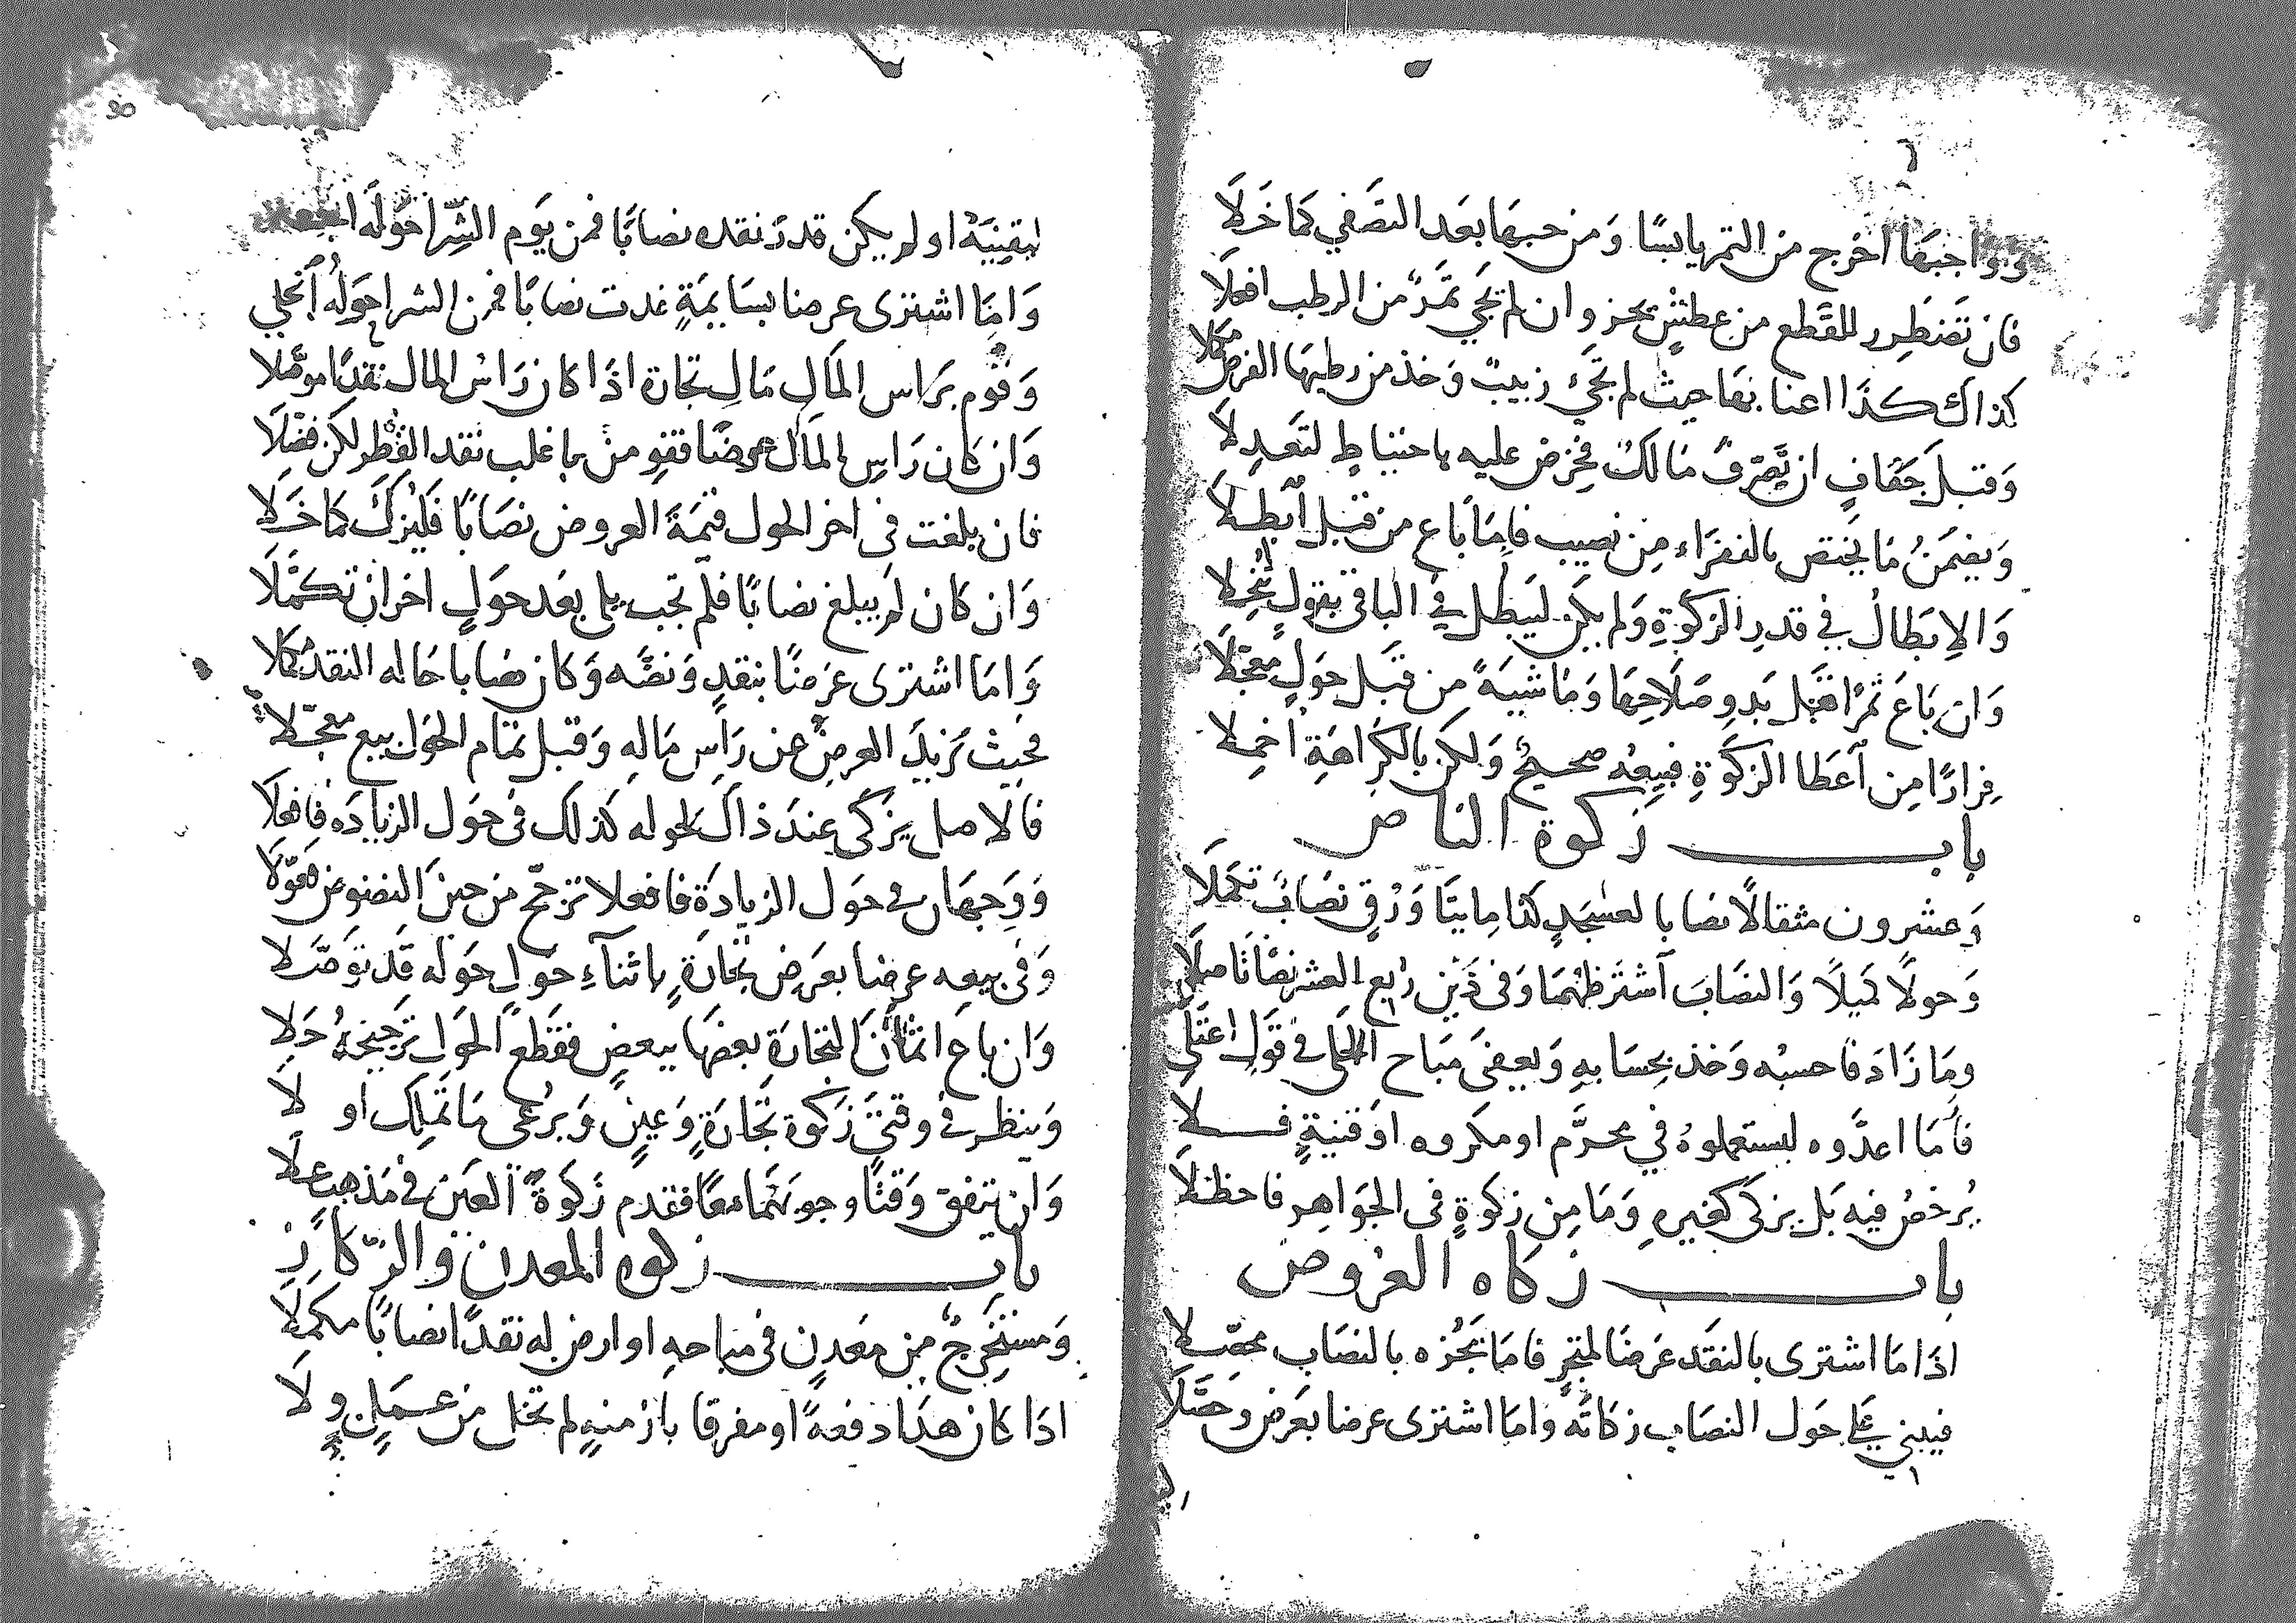 وواجبها اخرج من التمر يابسًا وَمن حبهَا بعَد التصَفي كمَا خَلَا
فان تَضطِرر للقَطع من عطشٍ يحز وان لم يَجي تمَرٌ من الرطب افعلَا
كذاك كذَا اعنابهَا حيث لم يَجَيْ زبيبٌ وَخذ من رطبهَا الفرض مكملا
وَقبلَ جَفافٍ ان تصَرّفَ مَالكٌ فخرْص عليه باحتياطٍ لتعَدِلَا
وَيضمَنُ مَا يَختص بالفقرَاء مِن نصيب فامّا بَاع من قبل اَبطلَا
وَالاِبطَالُ في قدرِ الزكوةِ وَلم يكن ليَبطل في الباقي بقولٍ تُنُخِلا
وَان بَاعَ ثمرًا قبَل بَدوِ صَلَاحِهَا وَمَاشيَةً مِن قبَل حَولٍ معجّلَا
فِرارًا مِن اَعطَا الزكَوةِ فبيعُه صحيحٌ وَلكن بالكَرَاهَةِ اُخمِلا
باب زكوة الناض
وَعشرون مثقالًا نصابا لعسْجَدٍ كذا مِايتَا وَرْقٍ نصَابٌ تكمَلَا
وَحولًا كمَيلًا وَالنصَابَ اَشتَرطهُمَا وَفى ذَيْن رُبع العشر نصًّا تَاصلَا
ومَا زَادَ فاحسبْه وَخذ بِحسَابهِ وَيعفىَ مبَاح الحَلى في قَولٍ اعتَلى
فاَمَا اعدَّوه ليستعملوهُ في محرَّم او مكروه اوَ قنيةٍ فلا
يُرخصُ فيه بَل يزكى كغيرهِ وَمَا مِن زكوةٍ فى الجوَاهِر فاحظلَا
باب زكاه العُروض
اذَا مَا اشترى بالنقَد عرَضَا لمتجرٍ فامَا تَجُزه بالنصَاب محصّلا
فيبني عَلى حَول النصَاب زكاتَه وامَا اشترى عرضا بعَرض وحَصَّلَا
لبقِنيَةٍ او لم يكن قدرَ نقده نصابًا فمن يَوم الشِّرَا حَولَه
وَامّا اشترى عرضا بسَايمَةٍ غدت نصابًا فمن الشرا حوَلُه اَنجلي
وَقوّم برَاس المَالِ مَالِ تجارة اذَا كان رَاسُ المال نقدًا موَصّلا
وَان كَان رَاسِ المَال عرضًا فقومن بما غلب نقد القُطرِ لكن فضّلَا
فان بلغت فى اخر الحول قيمَةُ العروض نصَابًا فَليُزكَ كمَا خَلَا
وَان كان لم يبلغ نصابًا فلم تجب بلى بعَد حوَلٍ اخر ان تكمَّلَا
وَامَا اشترى عرَضًا بنقدٍ وَنضَّه وَكان نصابا حَاله النقد كمّلا
بحيث يَزيدُ العرضِ عن رَاسِ مَالهِ وَقبل تمَام الحَول بيع معجّلا
فالاصل يزكى عندَ ذاك لحوله كذلك فى حَول الزيادَه فافعلَا
وَوجهَان في حوَل الزيادَة فافعلا ترجّح من حين النضوض
وَفى بيعِه عرضا بعَرض تجَارَةٍ باثنآءِ حَولٍ حَولُه قَد توَصّلا
وَان باع اثمانَ التجارَةِ بعضهَا ببعضٍ فقطعَ الحَول ترجيحهُ حَلا
وَينظر في وقتىَ زكوة تجَارَةٍ وَعينٍ وَيرُعى مَا تمَلك او لا
وَان يتفق وَقتًا وجوبَهمَا معًا فقدم زكوةَ العَين في مَذهبٍ علَا
باب زكوه المعدن والركَاز
وَمستخرجٌ من معَدنٍ فى مباحهِ او ارضٍ له نقدًا نصابًا مكمَّلَا
اذَا كان هذَا دفعةً او مفرقا بازمنهٍ لم تخل من عمَلٍ ولَا